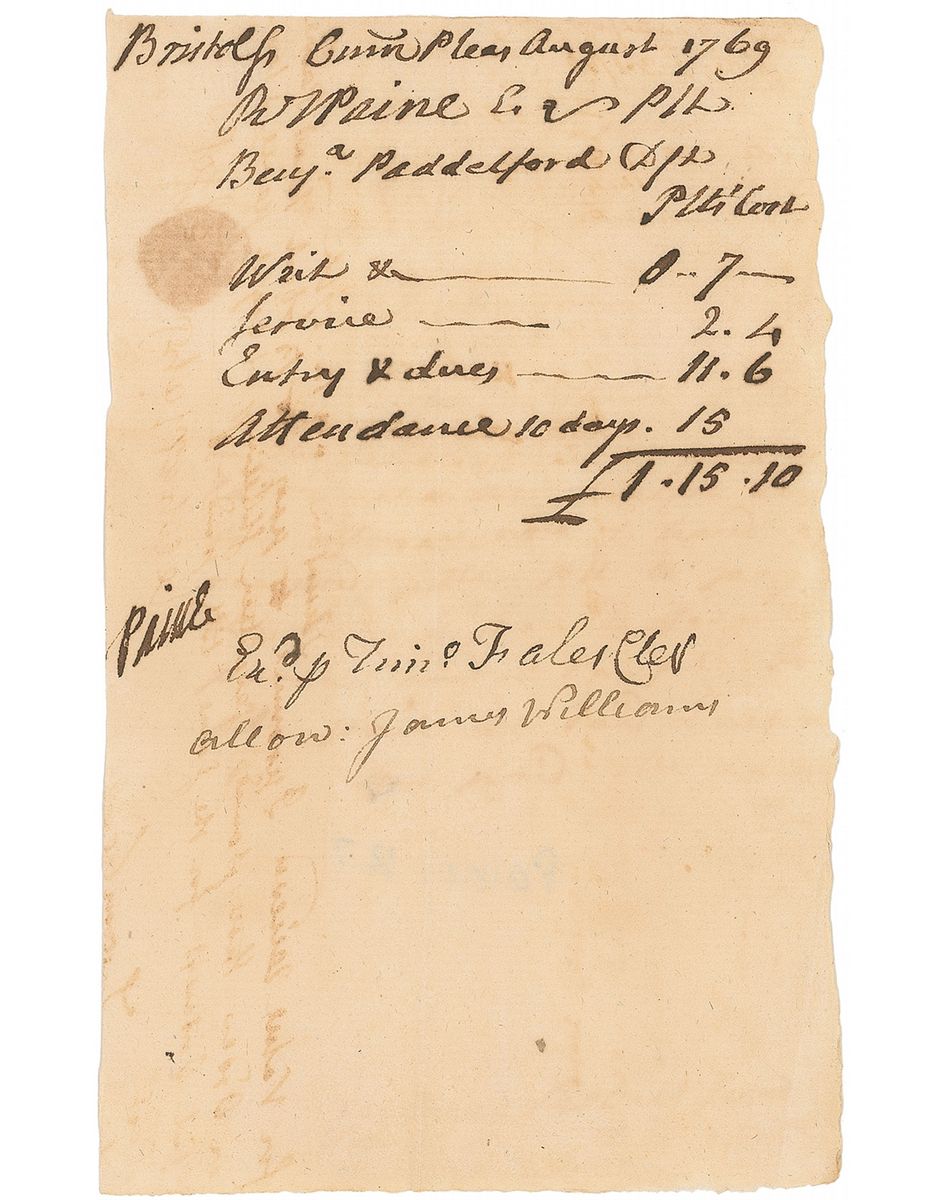 Bristol ss Com̄n Pleas August 1769
R T Paine Esqr Plt
Benja. Paddelford Dft
Plts Cost
Writ & — 0 .. 7 —
Service — 2 . 4
Entry & dues — 11 . 6
Attendance 10 days . 15
£1 . 15 . 10
Paine
Exd. p Timo. Fales Cler
allow: James Williams